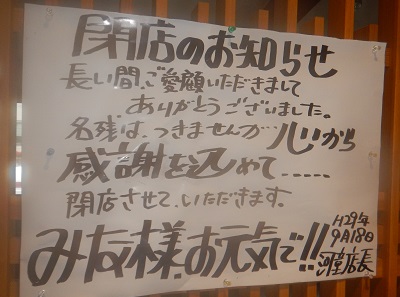 閉店のお知らせ
長い間、ご愛顧いただきまして
ありがとうございました。
名残は、つきませんが…心から
感謝を込めて‥‥‥
閉店させて、いただきます。
みな様、お元気で!!
H29年
9月18日
店長